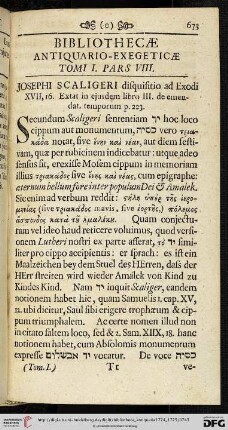 (0) 673
BIBLIOTHECÆ
ANTIQUARIO-EXEGETICÆ
TOMI I. PARS VIII.
JOSEPHI SCALIGERI disquisitio ad Exodi
XVII, 16. Extat in ejusdem libro III. de emen-
dat. temporum p. 223.
Secundum Scaligeri sententiam יד hoc loco
cippum aut monumentum, כסית vero τρια-
κάδα notat, sive ἕνην καὶ νέαν, aut diem festi-
vam, quæ per rubicinem indicebatur: utque adeo
sensus sit, erexisse Mosem cippum in memoriam
illius τριακάδος sive ἕνης καὶ νέας, cum epigraphe:
æternum bellum fore inter populum Dei & Amalek.
Sic enim ad verbum reddit:
ἄσπονδος κατὰ τῦ
Quam conjectu-
ram vel ideo haud reticere voluimus, quod versi-
onem Lutheri nostri ex parte asserat, יד simi-
liter pro cippo accipientis: er sprach: es ist ein
Maalzeichen bey dem Stuel des HErren, daß der
HErr streiten wird wieder Amalek von Kind zu
Kindes Kind. Nam יד inquit Scaliger, eandem
notionem habet hic, quam Samuelis I. cap. XV,
12. ubi dicitur, Saul sibi erigere trophæum & cip-
pum triumphalem. Ac certe nomen illud non
incitato saltem loco, sed & 2. Sam. XIIX, 18. hanc
notionem habet, cum Absolomis monumentum
expresse יד אבשלום vocatur. De voce כסית
(Tom. I.) Tt ve-
DFG